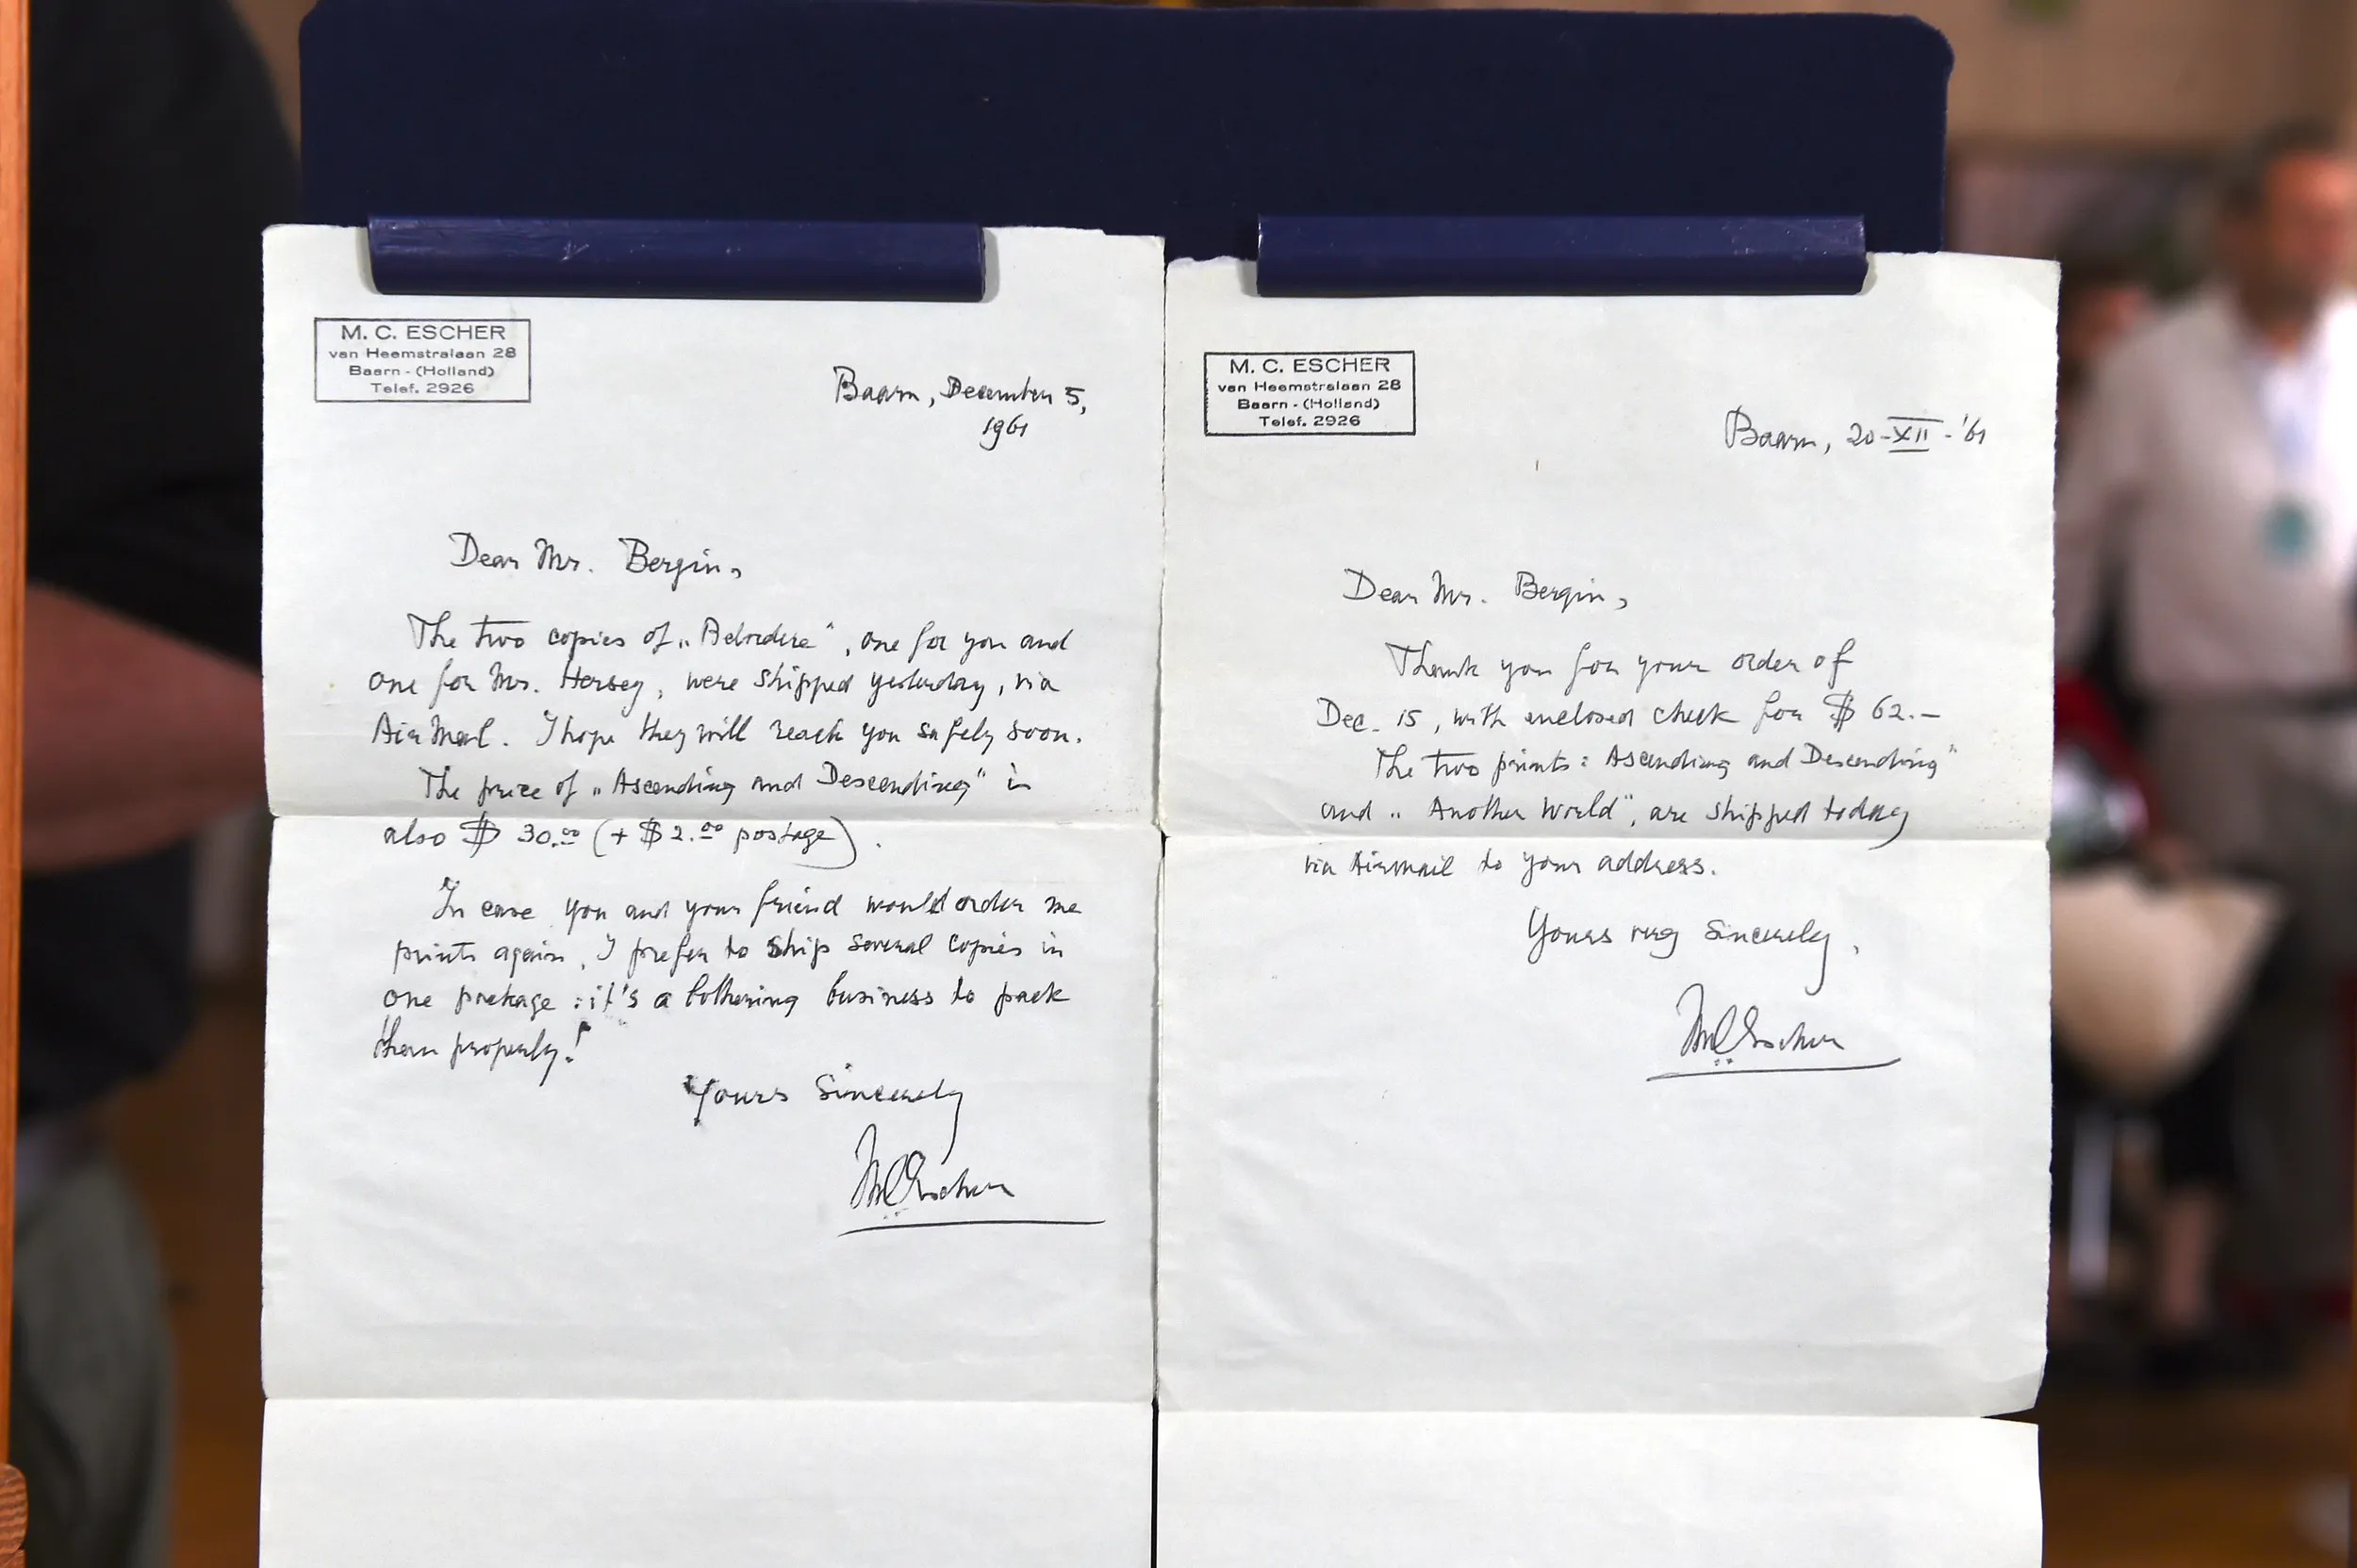 M. C. ESCHER
van Heemstralaan 28
Baarn - (Holland)
Telef. 2926
Baarn, December 5,
1961
Dear Mr. Bergin,
The two copies of „Belvedere", one for you and
one for Mr. Hersey, were shipped yesterday, via
Air Mail. I hope they will reach you safely soon.
The price of „Ascending and Descending" is
also $ 30.00 (+ $ 2.00 postage).
In case you and your friend would order me
prints again, I prefer to ship several copies in
one package: it's a bothering business to pack
them properly!
Yours Sincerely
MCEscher
M. C. ESCHER
van Heemstralaan 28
Baarn - (Holland)
Telef. 2926
Baarn, 20-XII-'61
Dear Mr. Bergin,
Thank you for your order of
Dec. 15, with enclosed check for $ 62.—
The two prints: Ascending and Descending"
and „Another World", are shipped today
via Airmail to your address.
Yours very Sincerely,
MCEscher